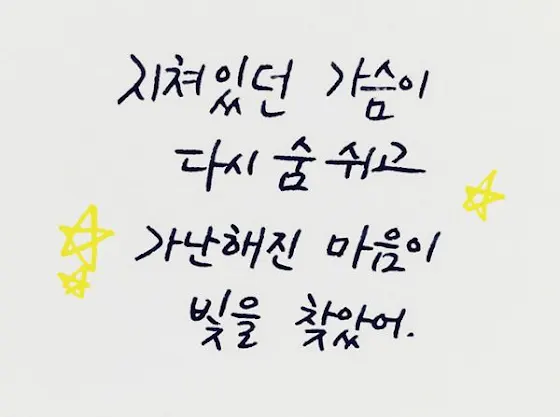 지쳐있던 가슴이
다시 숨 쉬고
가난해진 마음이
빛을 찾았어.